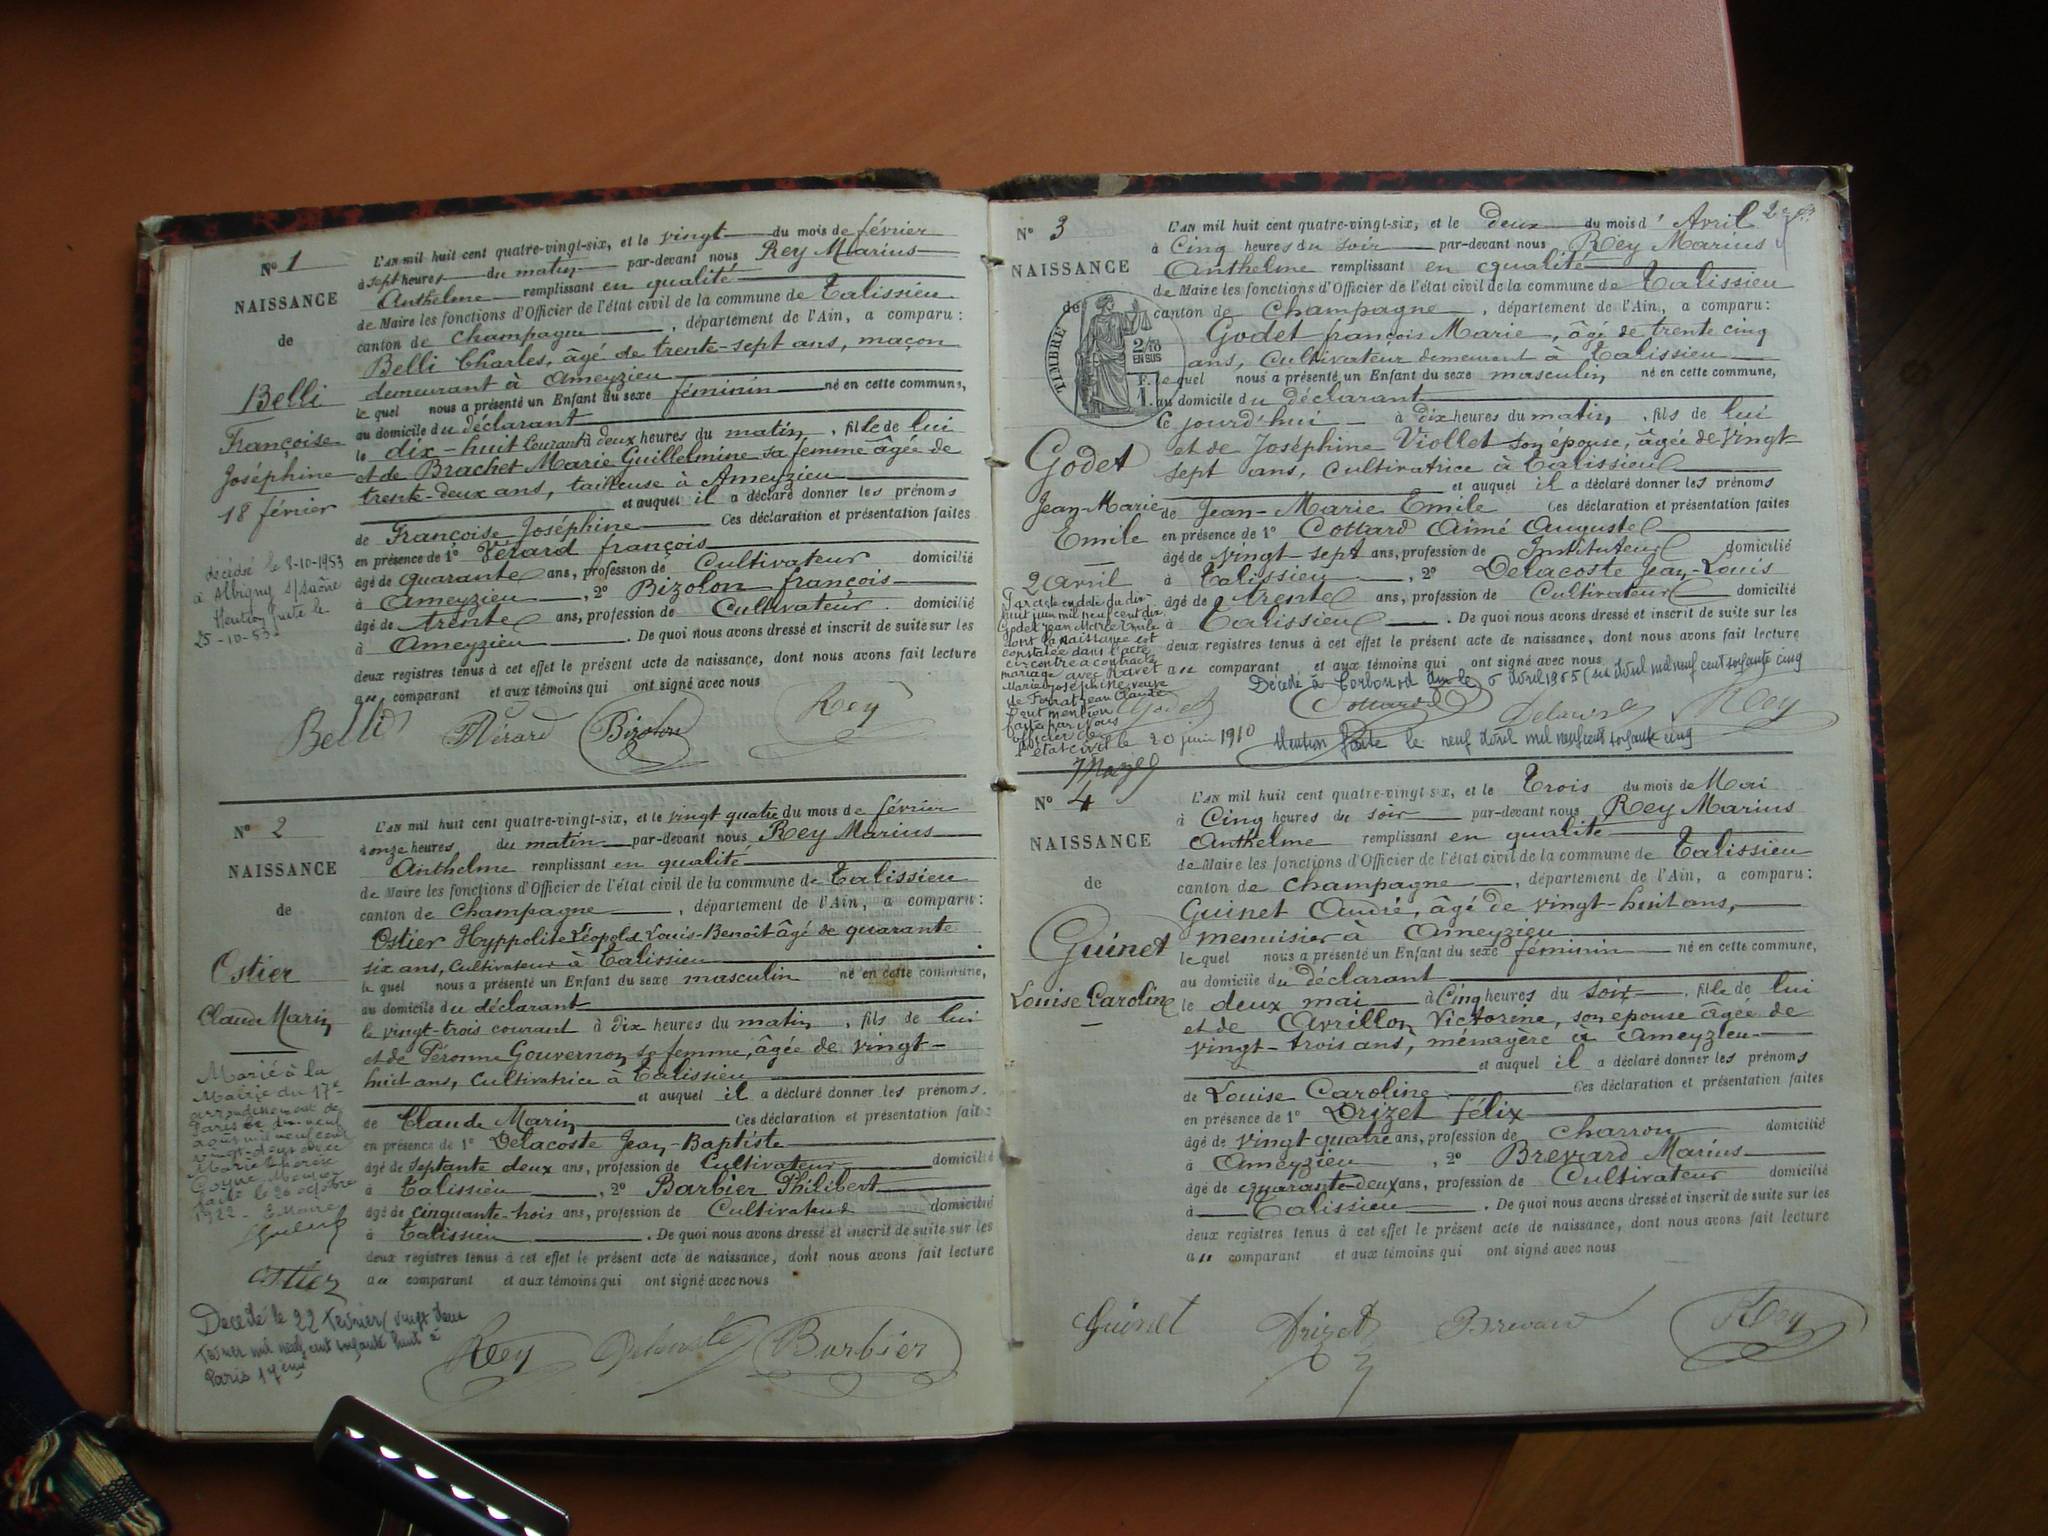 N° 1
NAISSANCE
de
Belli
Françoise
Joséphine
18 février
décédée le 8-10-1953
à Albigny s/Saône
Mention faite le
25-10-53
L'AN mil huit cent quatre-vingt-six, et le vingt du mois de février
à sept heures du matin par-devant nous Rey Marius
Anthelme remplissant en qualité
de Maire les fonctions d'Officier de l'état civil de la commune de Talissieu
canton de Champagne, département de l'Ain, a comparu :
Belli Charles, âgé de trente-sept ans, maçon
demeurant à Ameyzieu
lequel nous a présenté un Enfant du sexe féminin né en cette commune,
au domicile du déclarant
le dix-huit courant à deux heures du matin, fille de lui
et de Brachet Marie Guillelmine sa femme âgée de
trente-deux ans, tailleuse à Ameyzieu
et auquel il a déclaré donner les prénoms
de Françoise Joséphine Ces déclaration et présentation faites
en présence de 1° Vérard françois
âgé de quarante ans, profession de Cultivateur domicilié
à Ameyzieu, 2° Bizolon françois
âgé de trente ans, profession de Cultivateur domicilié
à Ameyzieu. De quoi nous avons dressé et inscrit de suite sur les
deux registres tenus à cet effet le présent acte de naissance, dont nous avons fait lecture
au comparant et aux témoins qui ont signé avec nous
Belli Vérard Bizolon Rey
N° 2
NAISSANCE
de
Ostier
Claude Marin
Marié à la
Mairie du 17e
arrondissement de
Paris le dix-neuf
août mil neuf cent
vingt-deux avec
Marie
faite le 26 octobre
1922 - Le Maire
Ostier
Décédé le 22 Février (vingt deux
février mil neuf cent soixante huit à
Paris 17ème
L'AN mil huit cent quatre-vingt-six, et le vingt quatre du mois de février
à onze heures du matin par-devant nous Rey Marius
Anthelme remplissant en qualité
de Maire les fonctions d'Officier de l'état civil de la commune de Talissieu
canton de Champagne, département de l'Ain, a comparu :
Ostier Hyppolite Léopold Louis-Benoît âgé de quarante
six ans, Cultivateur à Talissieu
lequel nous a présenté un Enfant du sexe masculin né en cette commune,
au domicile du déclarant
le vingt-trois courant à dix heures du matin, fils de lui
et de Péronne Gouvernon sa femme, âgée de vingt-
huit ans, Cultivatrice à Talissieu
et auquel il a déclaré donner les prénoms
de Claude Marin Ces déclaration et présentation faites
en présence de 1° Delacoste Jean-Baptiste
âgé de septante deux ans, profession de Cultivateur domicilié
à Talissieu, 2° Barbier Philibert
âgé de cinquante-trois ans, profession de Cultivateur domicilié
à Talissieu. De quoi nous avons dressé et inscrit de suite sur les
deux registres tenus à cet effet le présent acte de naissance, dont nous avons fait lecture
au comparant et aux témoins qui ont signé avec nous
Rey Delacoste Barbier
N° 3
NAISSANCE
de
TIMBRE
2/10
EN SUS
Godet
Jean-Marie
Emile
2 avril
Par acte en date du dix
huit juin mil neuf cent dix
Godet Jean Marie Emile
dont la naissance est
constatée dans l'acte
ci-contre a contracté
mariage avec Ravet
Marie Joséphine veuve
de Forrat Jean Claude
Dont mention
faite par Nous
officier de
l'état civil le 20 juin 1910
L'AN mil huit cent quatre-vingt-six, et le deux du mois d'Avril
à Cinq heures du soir par-devant nous Rey Marius
Anthelme remplissant en qualité
de Maire les fonctions d'Officier de l'état civil de la commune de Talissieu
canton de Champagne, département de l'Ain, a comparu :
Godet françois Marie, âgé de trente cinq
ans, Cultivateur demeurant à Talissieu
lequel nous a présenté un Enfant du sexe masculin né en cette commune,
au domicile du déclarant
Ce jourd'hui à dix heures du matin, fils de lui
et de Joséphine Viollet son épouse, âgée de vingt
sept ans, Cultivatrice à Talissieu
et auquel il a déclaré donner les prénoms
de Jean-Marie Emile Ces déclaration et présentation faites
en présence de 1° Cottard Aimé Auguste
âgé de vingt-sept ans, profession de Instituteur domicilié
à Talissieu, 2° Delacoste Jean-Louis
âgé de trente ans, profession de Cultivateur domicilié
à Talissieu. De quoi nous avons dressé et inscrit de suite sur les
deux registres tenus à cet effet le présent acte de naissance, dont nous avons fait lecture
au comparant et aux témoins qui ont signé avec nous
Décédé à Corbonod le 6 Avril 1965 (six Avril mil neuf cent soixante cinq
Godet Cottard Delacoste Rey
Mention faite le neuf Avril mil neuf cent soixante cinq
N° 4
NAISSANCE
de
Guinet
Louise Caroline
L'AN mil huit cent quatre-vingt-six, et le Trois du mois de Mai
à Cinq heures du soir par-devant nous Rey Marius
Anthelme remplissant en qualité
de Maire les fonctions d'Officier de l'état civil de la commune de Talissieu
canton de Champagne, département de l'Ain, a comparu :
Guinet André, âgé de vingt-huit ans,
menuisier à Ameyzieu
lequel nous a présenté un Enfant du sexe féminin né en cette commune,
au domicile du déclarant
le deux mai à Cinq heures du soir, fille de lui
et de Avrillon Victorine, son épouse âgée de
vingt-trois ans, ménagère à Ameyzieu
et auquel il a déclaré donner les prénoms
de Louise Caroline Ces déclaration et présentation faites
en présence de 1° Drizet félix
âgé de vingt quatre ans, profession de Charron domicilié
à Ameyzieu, 2° Brevard Marius
âgé de quarante-deux ans, profession de Cultivateur domicilié
à Talissieu. De quoi nous avons dressé et inscrit de suite sur les
deux registres tenus à cet effet le présent acte de naissance, dont nous avons fait lecture
au comparant et aux témoins qui ont signé avec nous
Guinet Drizet Brevard Rey